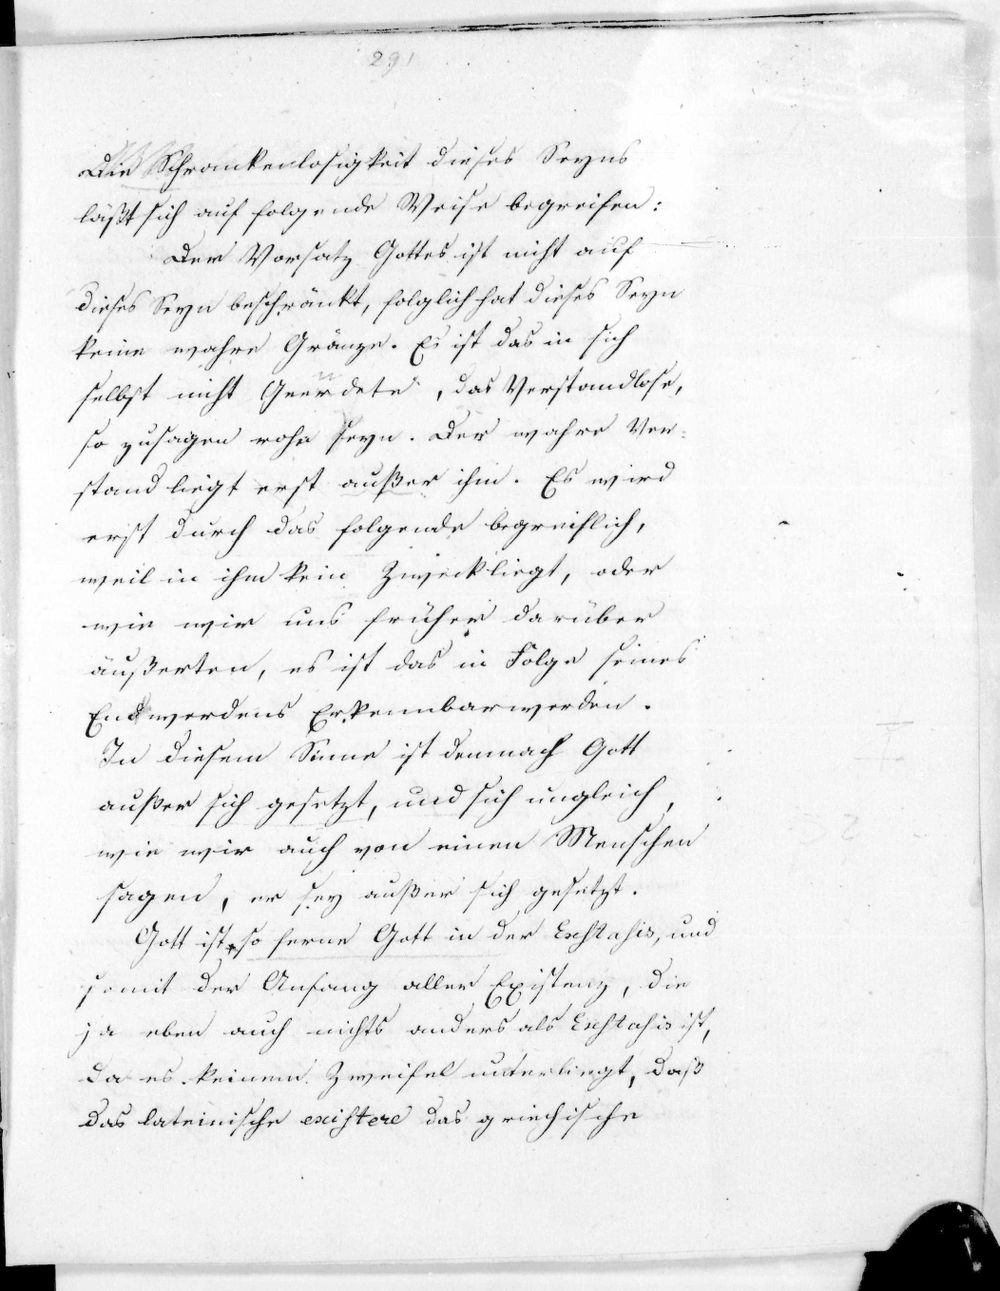 291
Die Schrankenlosigkeit dieses Seyns
läßt sich auf folgende Weise begreifen:
Der Vorsatz Gottes ist nicht auf
dieses Seyn beschränkt, folglich hat dieses Seyn
keine wahre Gränze. Es ist das in sich
selbst nicht Geendete, das Verstandlose,
so zusagen rohe Seyn. Der wahre Ver-
stand liegt erst außer ihm. Es wird
erst durch das folgende begreiflich,
weil in ihm kein Zweck liegt, oder
wie wir uns früher darüber
äußerten, es ist das in Folge seines
Endwerdens Erkennbarwerden.
In diesem Sinne ist demnach Gott
außer sich gesetzt, und sich ungleich,
wie wir auch von einen Menschen
sagen, er sey außer sich gesetzt.
Gott ist so ferne Gott in der Exstasis, und
somit der Anfang aller Existenz, die
ja eben auch nichts anders als Exstasis ist,
da es keinem Zweifel unterliegt, daß
das lateinische existere das griechische